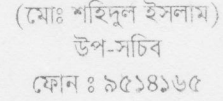 (মোঃ শহিদুল ইসলাম)
উপ-সচিব
ফোন ঃ ৯৫১৪১৬৫